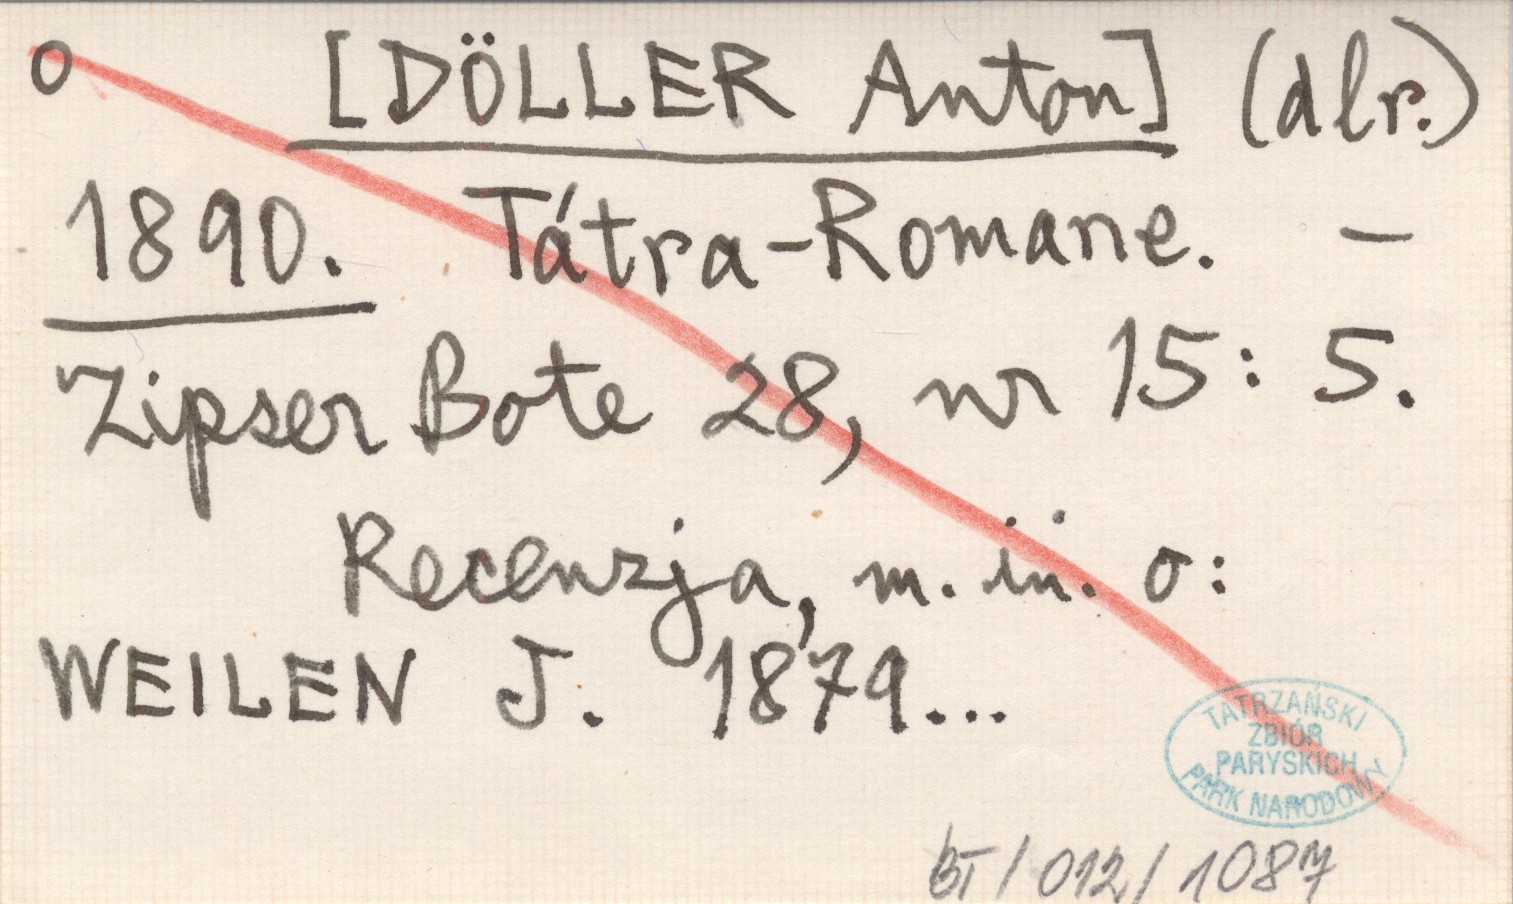 o [DÖLLER Anton] (dlr.)
1890. Tátra-Romane. –
Zipser Bote 28, nr 15: 5.
Recenzja, m. in. o:
WEILEN J. 1879...
TATRZAŃSKI
ZBIÓR
PARYSKICH
PARK NARODOWY
BT/012/1087